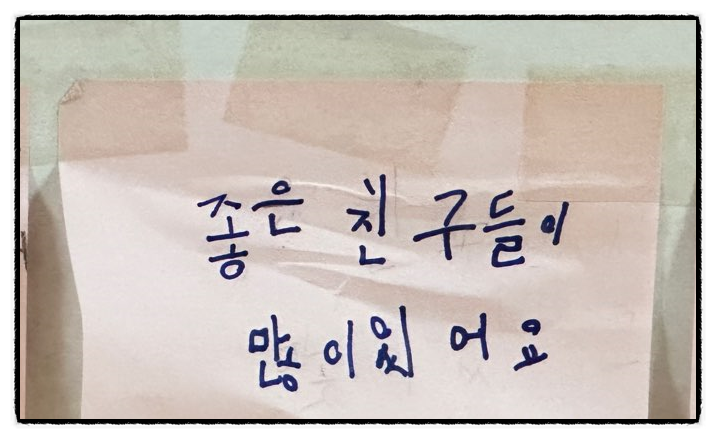 좋은 친구들이
많이있어요